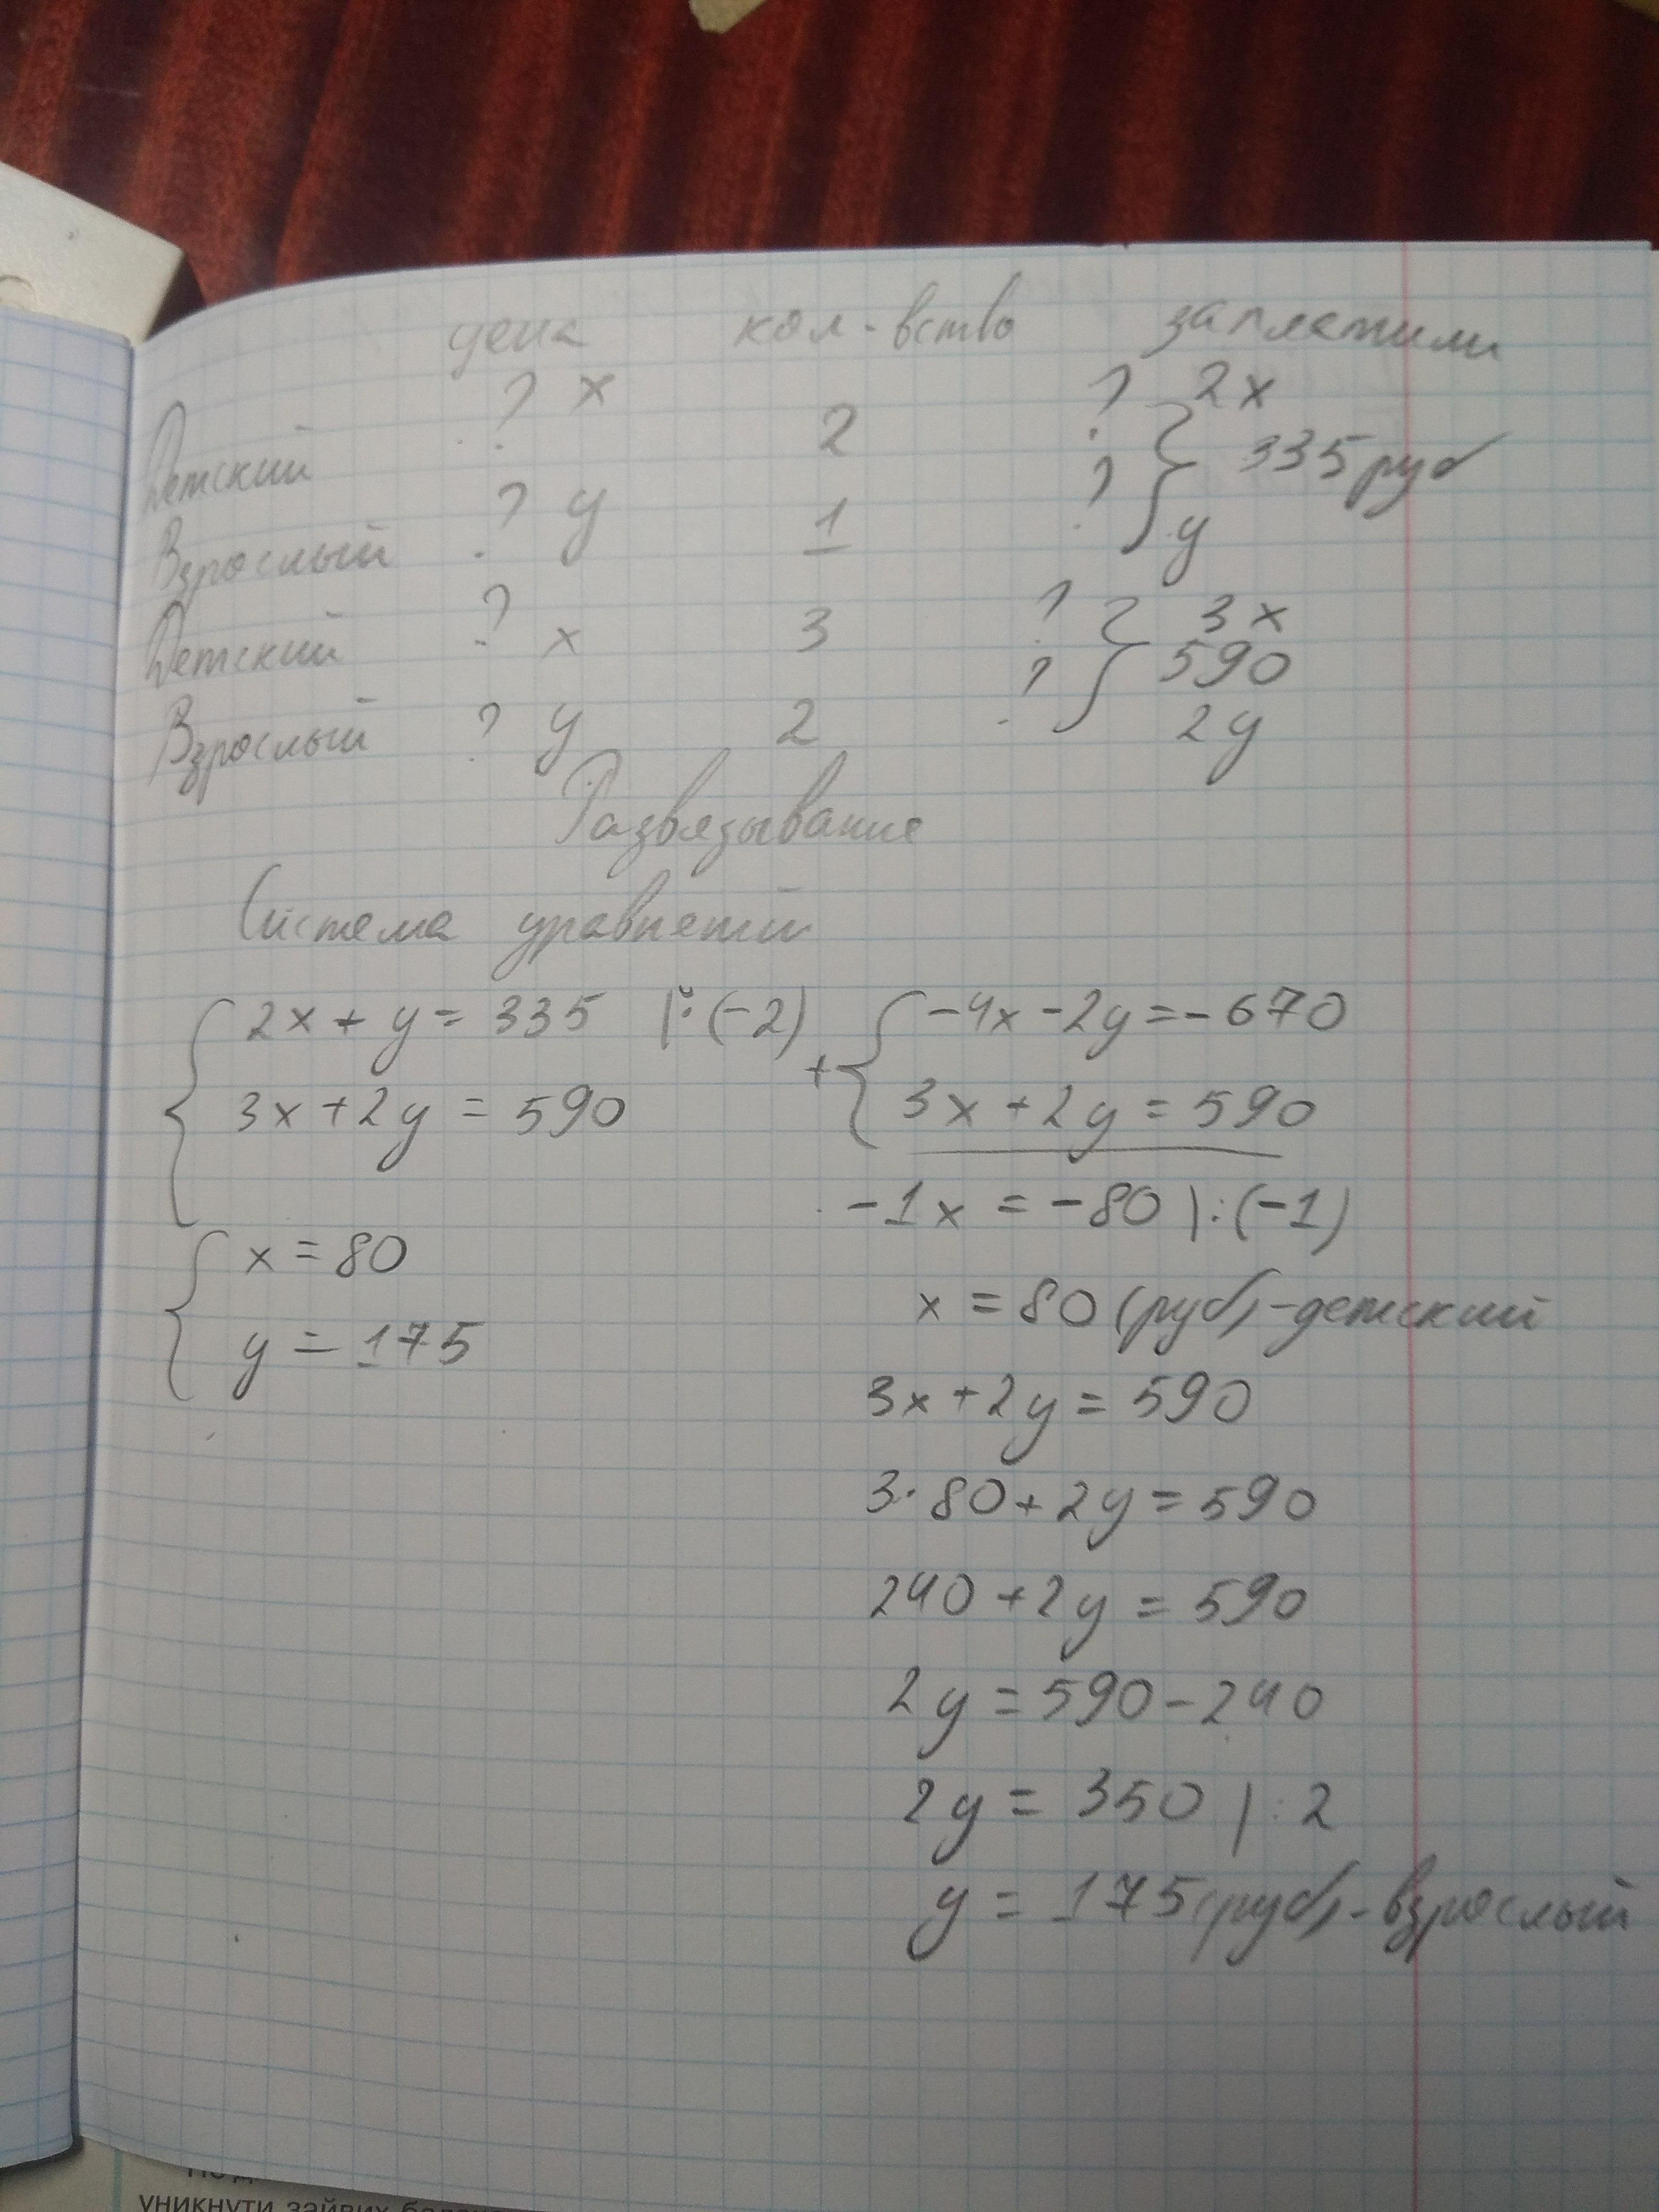 цена кол-вство заплатили
Детский ? x 2 ? 2x
335 руб
Взрослый ? y 1 ? y
Детский ? x 3 ? 3x
590
Взрослый ? y 2 ? 2y
Развязывание
Система уравнений
2x + y = 335 |:(-2)
3x + 2y = 590
+ -4x - 2y = -670
3x + 2y = 590
-1x = -80 |:(-1)
x = 80 (руб) - детский
3x + 2y = 590
3·80 + 2y = 590
240 + 2y = 590
2y = 590 - 240
2y = 350 |:2
y = 175 (руб) - взрослый
x = 80
y = 175
уникнути зайвих